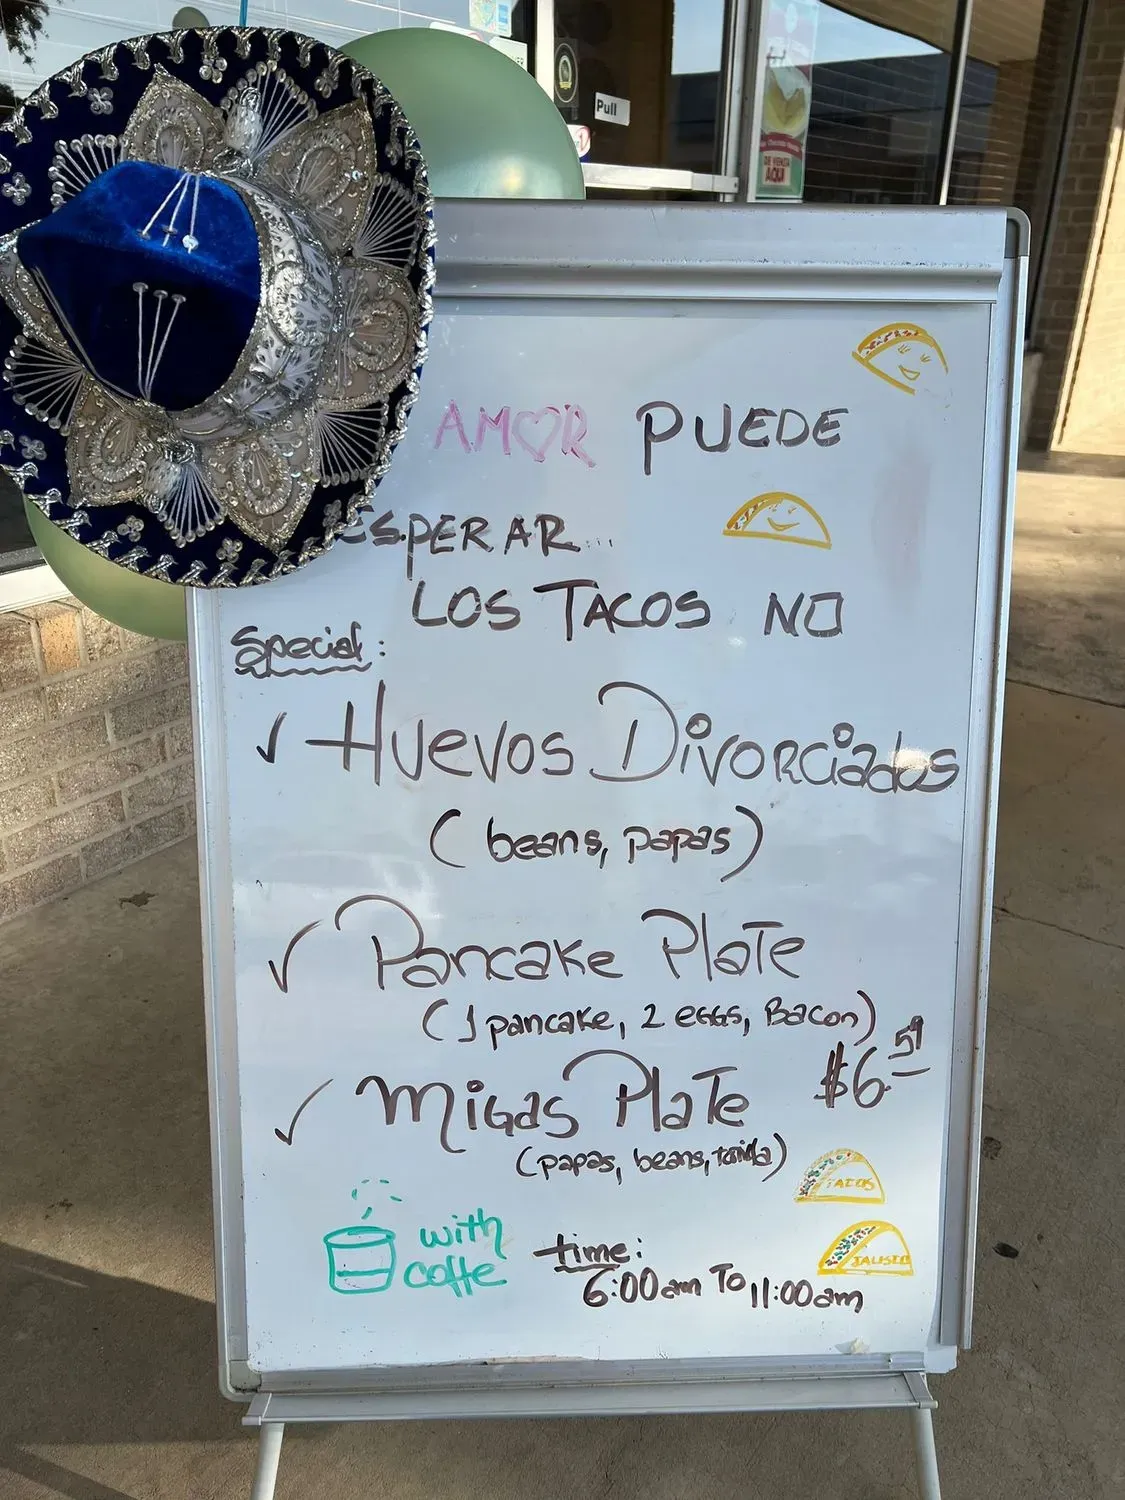 Pull
DE VENTA
AQUI
AMOR PUEDE
ESPERAR...
LOS TACOS NO
Special:
✓ Huevos Divorciados
(beans, papas)
✓ Pancake Plate
(1 pancake, 2 eggs, Bacon)
$6.59
✓ Migas Plate
(papas, beans, tortilla)
TACOS
JALISCO
with
coffe
time:
6:00am To 11:00am